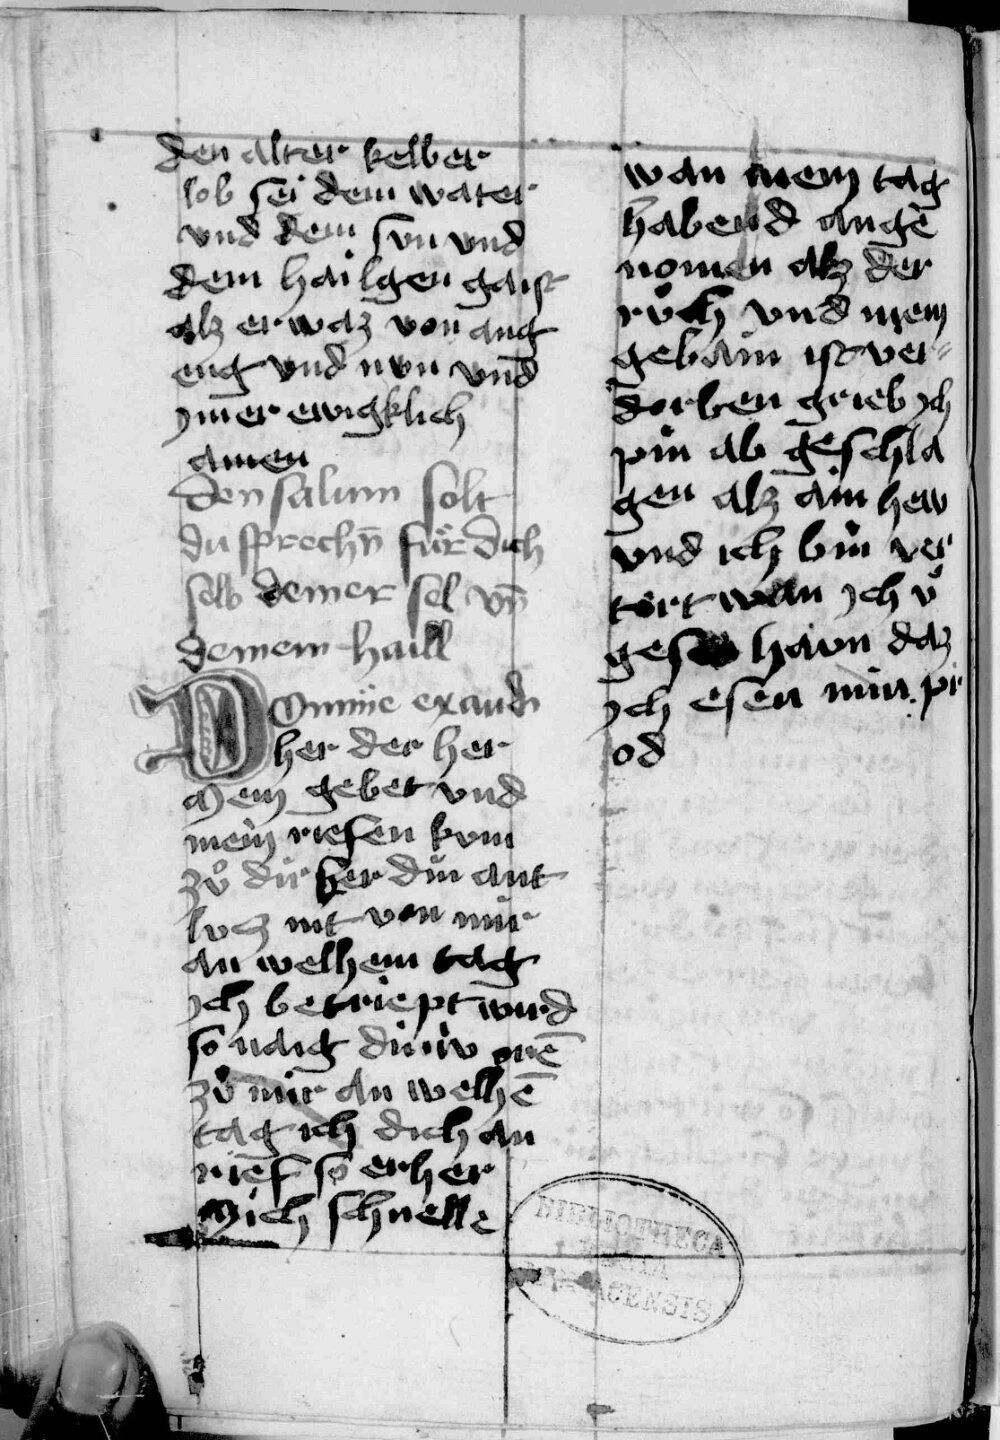 den alter kelber
lob sei dem water
vnd dem svn vnd
dem hailgen gaist
alz er waz von ang
eng vnd nvn vnd
ymer ewigklich
amen
den salmm solt
du sprechn̄ fúr dich
selb deiner sel vn̄
deinem haill
Domine exaudi
her der her
mein gebet vnd
mein riefen kvm
zů dir her din ant
lvcz nit von mir
an welhem tag
ych betriept wird
so naig diniv orē
zů mir an welhē
tag ich dich an
rief so erher
mich schnelle
wan mein tag
habend angē
nomen alz der
rǒch vnd mein
gebain ist ver-
dorben grieb ych
pin ab geschla
gen alz ain hew
vnd ich bin ver
tort wan ych v̊
gesen havn daz
ych esen min pr
od
BIBLIOTHECA
REGIA
MONACENSIS